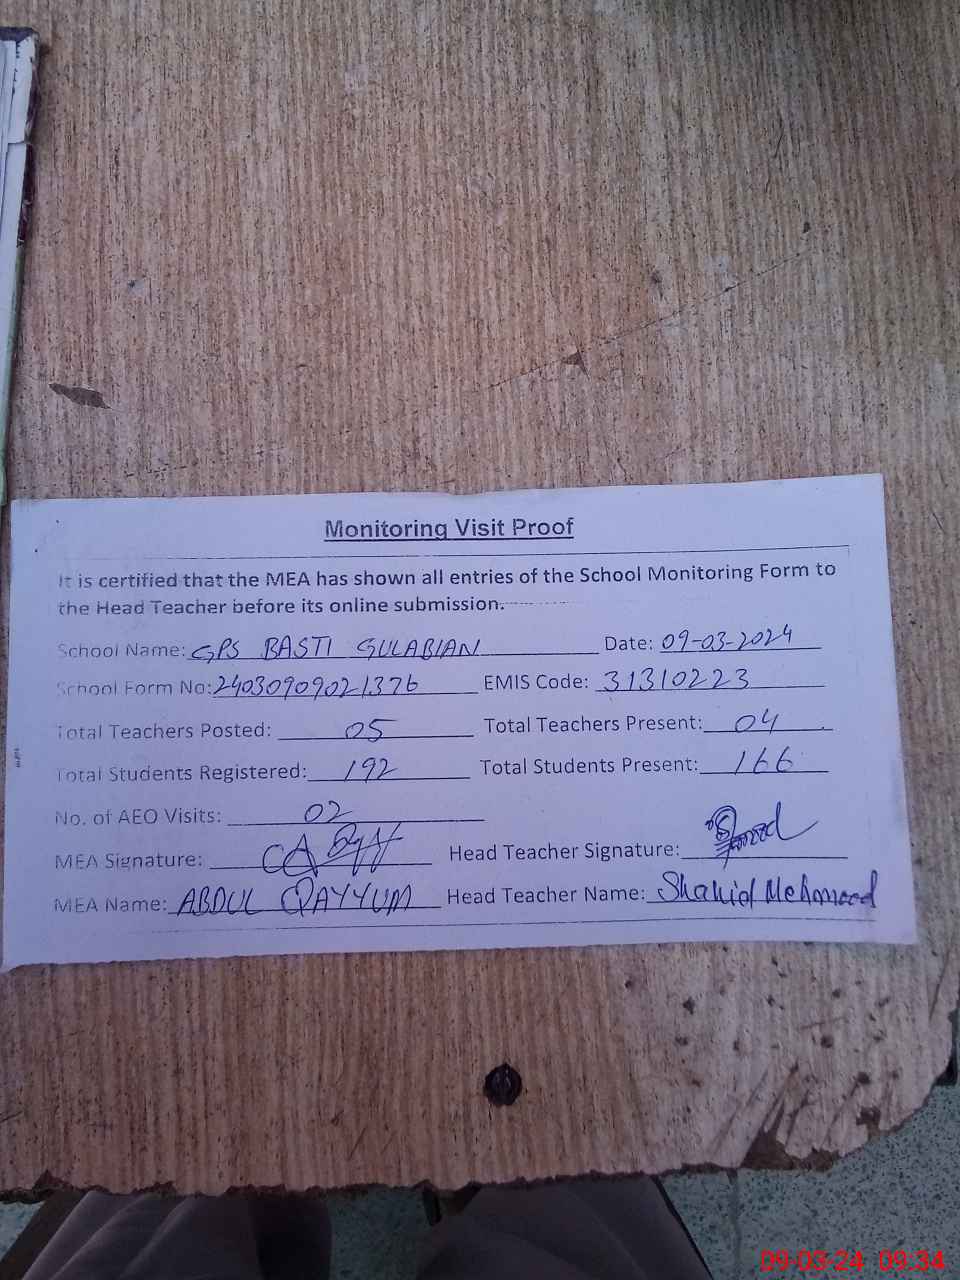 Monitoring Visit Proof
It is certified that the MEA has shown all entries of the School Monitoring Form to
the Head Teacher before its online submission.
School Name: GPS BASTI GULABIAN Date: 09-03-2024
School Form No: 24030909021376 EMIS Code: 31310223
Total Teachers Posted: 05 Total Teachers Present: 04
Total Students Registered: 192 Total Students Present: 166
No. of AEO Visits: 02
MEA Signature: Head Teacher Signature:
MEA Name: ABDUL QAYYUM Head Teacher Name: Shahid Mehmood
09-03-24 09:34